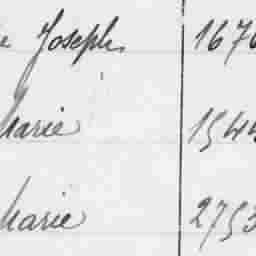 Joseph 1676
Marie 1544
Marie 2753